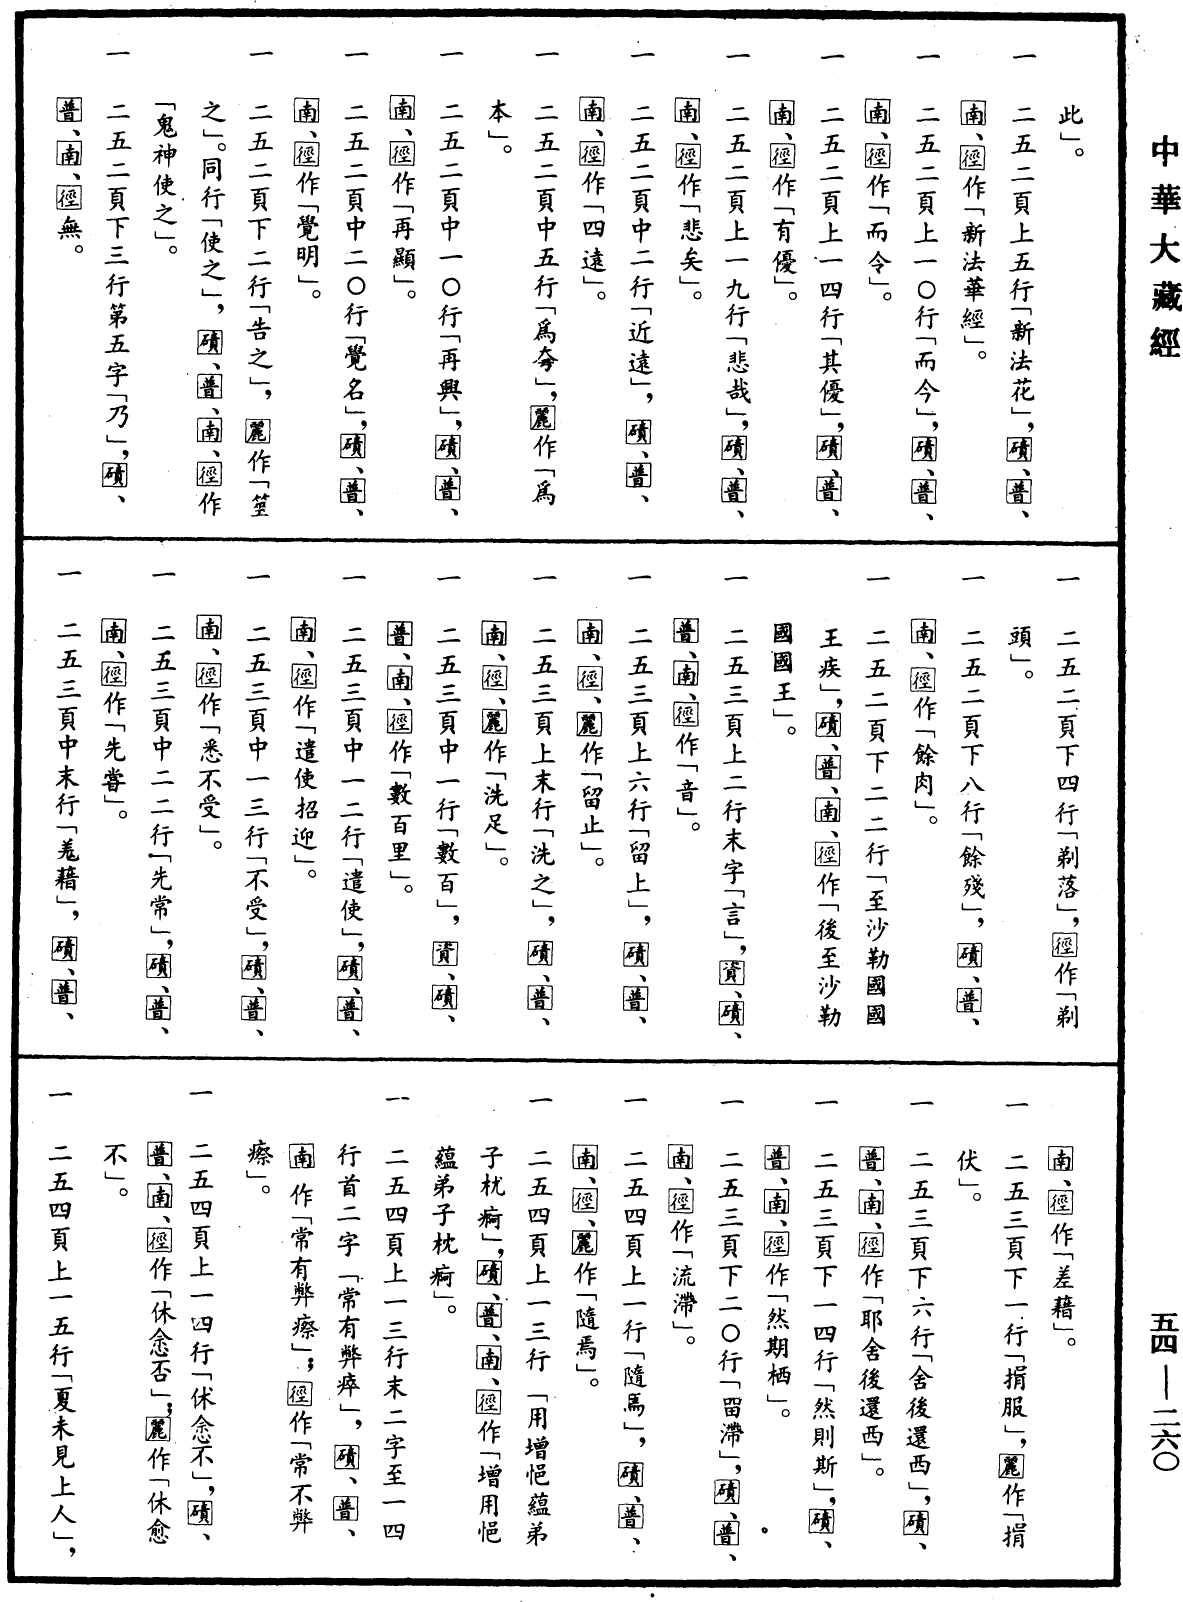 中華大藏經
此」。
一 二五二頁上五行「新法花」，磧、普、
南、徑作「新法華經」。
一 二五二頁上一〇行「而今」，磧、普、
南、徑作「而令」。
一 二五二頁上一四行「其優」，磧、普、
南、徑作「有優」。
一 二五二頁上一九行「悲哉」，磧、普、
南、徑作「悲矣」。
一 二五二頁中二行「近遠」，磧、普、
南、徑作「四遠」。
一 二五二頁中五行「爲夸」，麗作「爲
本」。
一 二五二頁中一〇行「再興」，磧、普、
南、徑作「再顯」。
一 二五二頁中二〇行「覺名」，磧、普、
南、徑作「覺明」。
一 二五二頁下二行「告之」，麗作「筮
之」。同行「使之」，磧、普、南、徑作
「鬼神使之」。
一 二五二頁下三行第五字「乃」，磧、
普、南、徑無。
一 二五二頁下四行「剃落」，徑作「剃
頭」。
一 二五二頁下八行「餘殘」，磧、普、
南、徑作「餘肉」。
一 二五二頁下二二行「至沙勒國國
王疾」，磧、普、南、徑作「後至沙勒
國國王」。
一 二五三頁上二行末字「言」，資、磧、
普、南、徑作「音」。
一 二五三頁上六行「留上」，磧、普、
南、徑、麗作「留止」。
一 二五三頁上末行「洗之」，磧、普、
南、徑、麗作「洗足」。
一 二五三頁中一行「數百」，資、磧、
普、南、徑作「數百里」。
一 二五三頁中一二行「遣使」，磧、普、
南、徑作「遣使招迎」。
一 二五三頁中一三行「不受」，磧、普、
南、徑作「悉不受」。
一 二五三頁中二二行「先常」，磧、普、
南、徑作「先嘗」。
一 二五三頁中末行「羗藉」，磧、普、
南、徑作「差藉」。
一 二五三頁下一行「捐服」，麗作「捐
伏」。
一 二五三頁下六行「舍後還西」，磧、
普、南、徑作「耶舍後還西」。
一 二五三頁下一四行「然則斯」，磧、
普、南、徑作「然期栖」。
一 二五三頁下二〇行「留滯」，磧、普、
南、徑作「流滯」。
一 二五四頁上一行「隨馬」，磧、普、
南、徑、麗作「隨焉」。
一 二五四頁上一三行「用增悒蘊弟
子枕痾」，磧、普、南、徑作「增用悒
蘊弟子枕痾」。
一 二五四頁上一三行末二字至一四
行首二字「常有弊瘁」，磧、普、
南作「常有弊瘵」；徑作「常不弊
瘵」。
一 二五四頁上一四行「休悆不」，磧、
普、南、徑作「休悆否」；麗作「休愈
不」。
一 二五四頁上一五行「夏未見上人」，
五四—二六〇